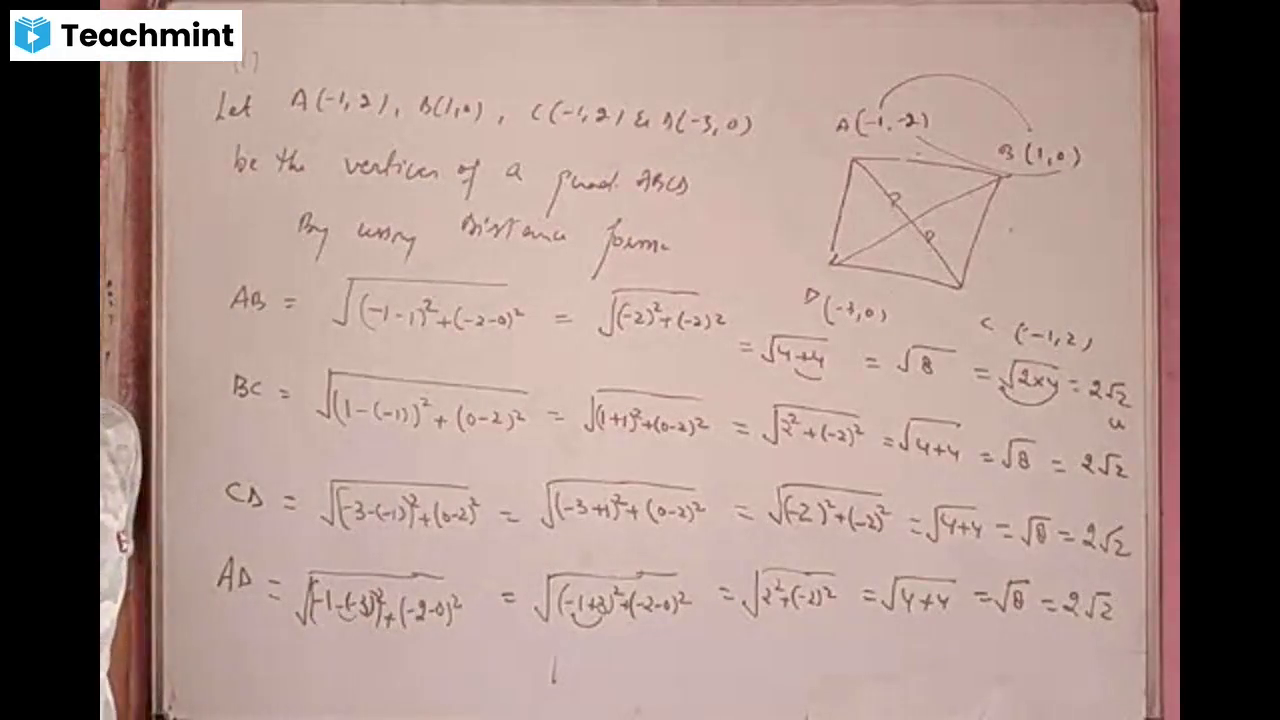 Teachmint
(1)
Let A(-1,2), B(1,0), C(-1,2) & D(-3,0)
be the vertices of a quad. ABCD
By using Distance form
A(-1,-2)
B(1,0)
D(-3,0)
C (-1,2)
AB = √(-1-1)²+(-2-0)² = √(-2)²+(-2)² = √4+4 = √8 = √2×4 = 2√2 u
BC = √(1-(-1))²+(0-2)² = √(1+1)²+(0-2)² = √2²+(-2)² = √4+4 = √8 = 2√2
CD = √(-3-(-1))²+(0-2)² = √(-3+1)²+(0-2)² = √(-2)²+(-2)² = √4+4 = √8 = 2√2
AD = √(-1-(-3))²+(-2-0)² = √(-1+3)²+(-2-0)² = √2²+(-2)² = √4+4 = √8 = 2√2